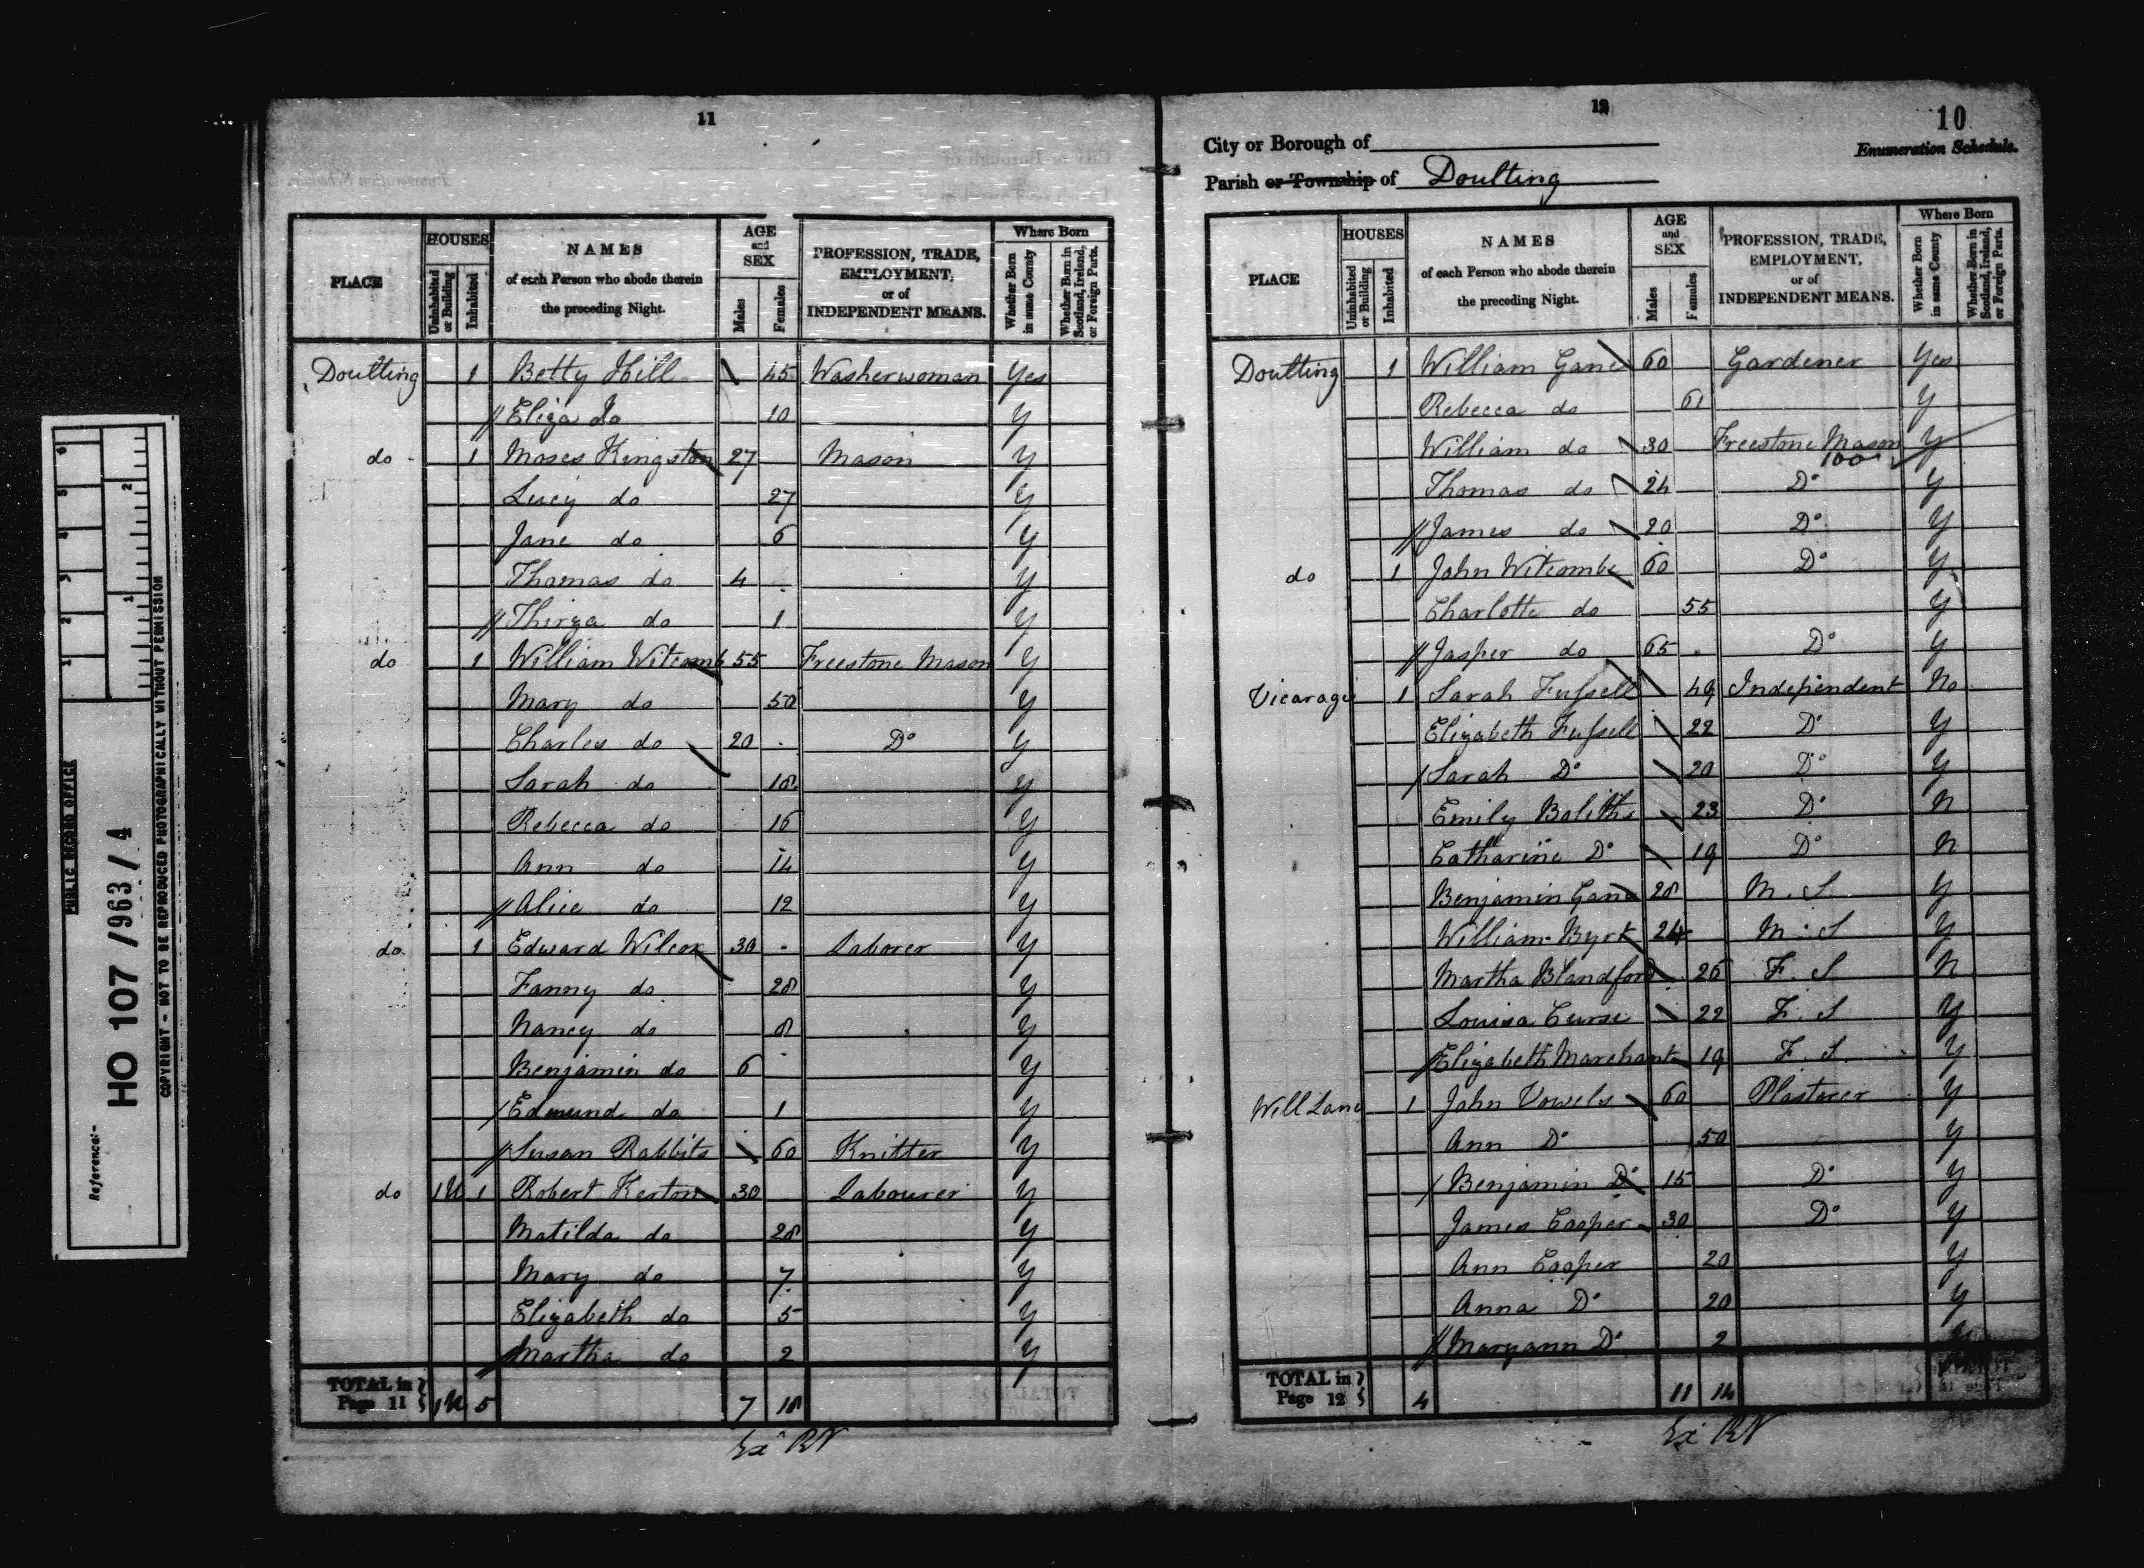 11
PLACE | HOUSES Uninhabited or Building | Inhabited | NAMES of each Person who abode therein the preceding Night. | AGE and SEX Males | Females | PROFESSION, TRADE, EMPLOYMENT, or of INDEPENDENT MEANS. | Where Born Whether Born in same County | Whether Born in Scotland, Ireland, or Foreign Parts.
Doulting 1 Betty Hill 45 Washerwoman Yes
Eliza do 10 Y
do 1 Moses Kingston 27 Mason Y
Lucy do 27 Y
Jane do 6 Y
Thomas do 4 Y
Thirza do 1 Y
do 1 William Witcomb 55 Freestone Mason Y
Mary do 50 Y
Charles do 20 Do Y
Sarah do 18 Y
Rebecca do 16 Y
Ann do 14 Y
Alice do 12 Y
do 1 Edward Wilcox 30 Laborer Y
Fanny do 28 Y
Nancy do 8 Y
Benjamin do 6 Y
Edmund do 1 Y
Susan Rabbits 60 Knitter Y
do 1U 1 Robert Kerton 30 Labourer Y
Matilda do 28 Y
Mary do 7 Y
Elizabeth do 5 Y
Martha do 2 Y
TOTAL in Page 11 } 1U 5 7 18
Ex RN
12
10
City or Borough of
Enumeration Schedule.
Parish or Township of Doulting
PLACE | HOUSES Uninhabited or Building | Inhabited | NAMES of each Person who abode therein the preceding Night. | AGE and SEX Males | Females | PROFESSION, TRADE, EMPLOYMENT, or of INDEPENDENT MEANS. | Where Born Whether Born in same County | Whether Born in Scotland, Ireland, or Foreign Parts.
Doulting 1 William Gane 60 Gardener Yes
Rebecca do 61 Y
William do 30 Freestone Mason Y
100
Thomas do 24 Do Y
James do 20 Do Y
do 1 John Witcombe 60 Do Y
Charlotte do 55 Y
Jasper do 65 Do Y
Vicarage 1 Sarah Fussell 49 Independent No
Elizabeth Fussell 22 Do Y
Sarah Do 20 Do Y
Emily 23 Do N
Catharine Do 19 Do N
Benjamin Gane 28 M. S Y
William Byrt 24 M. S Y
Martha Blandford 26 F. S N
Louisa 22 F. S Y
Elizabeth Marchant 19 F. S Y
Well Lane 1 John Vowels 60 Plastorer Y
Ann Do 50 Y
Benjamin Do 15 Do Y
James Cooper 30 Do Y
Ann Cooper 20 Y
Anna Do 20 Y
Maryann Do 2
TOTAL in Page 12 } 4 11 14
Ex RN
PUBLIC RECORD OFFICE
Reference:-
HO 107 / 963 / 4
COPYRIGHT - NOT TO BE REPRODUCED PHOTOGRAPHICALLY WITHOUT PERMISSION
1 2 3 4 5 6
1 2